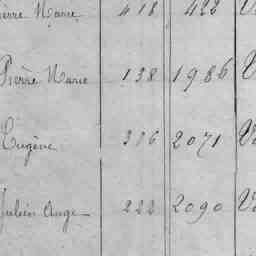 Pierre Marie 418 422 V
Pierre Marie 138 1986 V
Eugène 376 2071 Ve
Julien Ange 222 2090 Ve